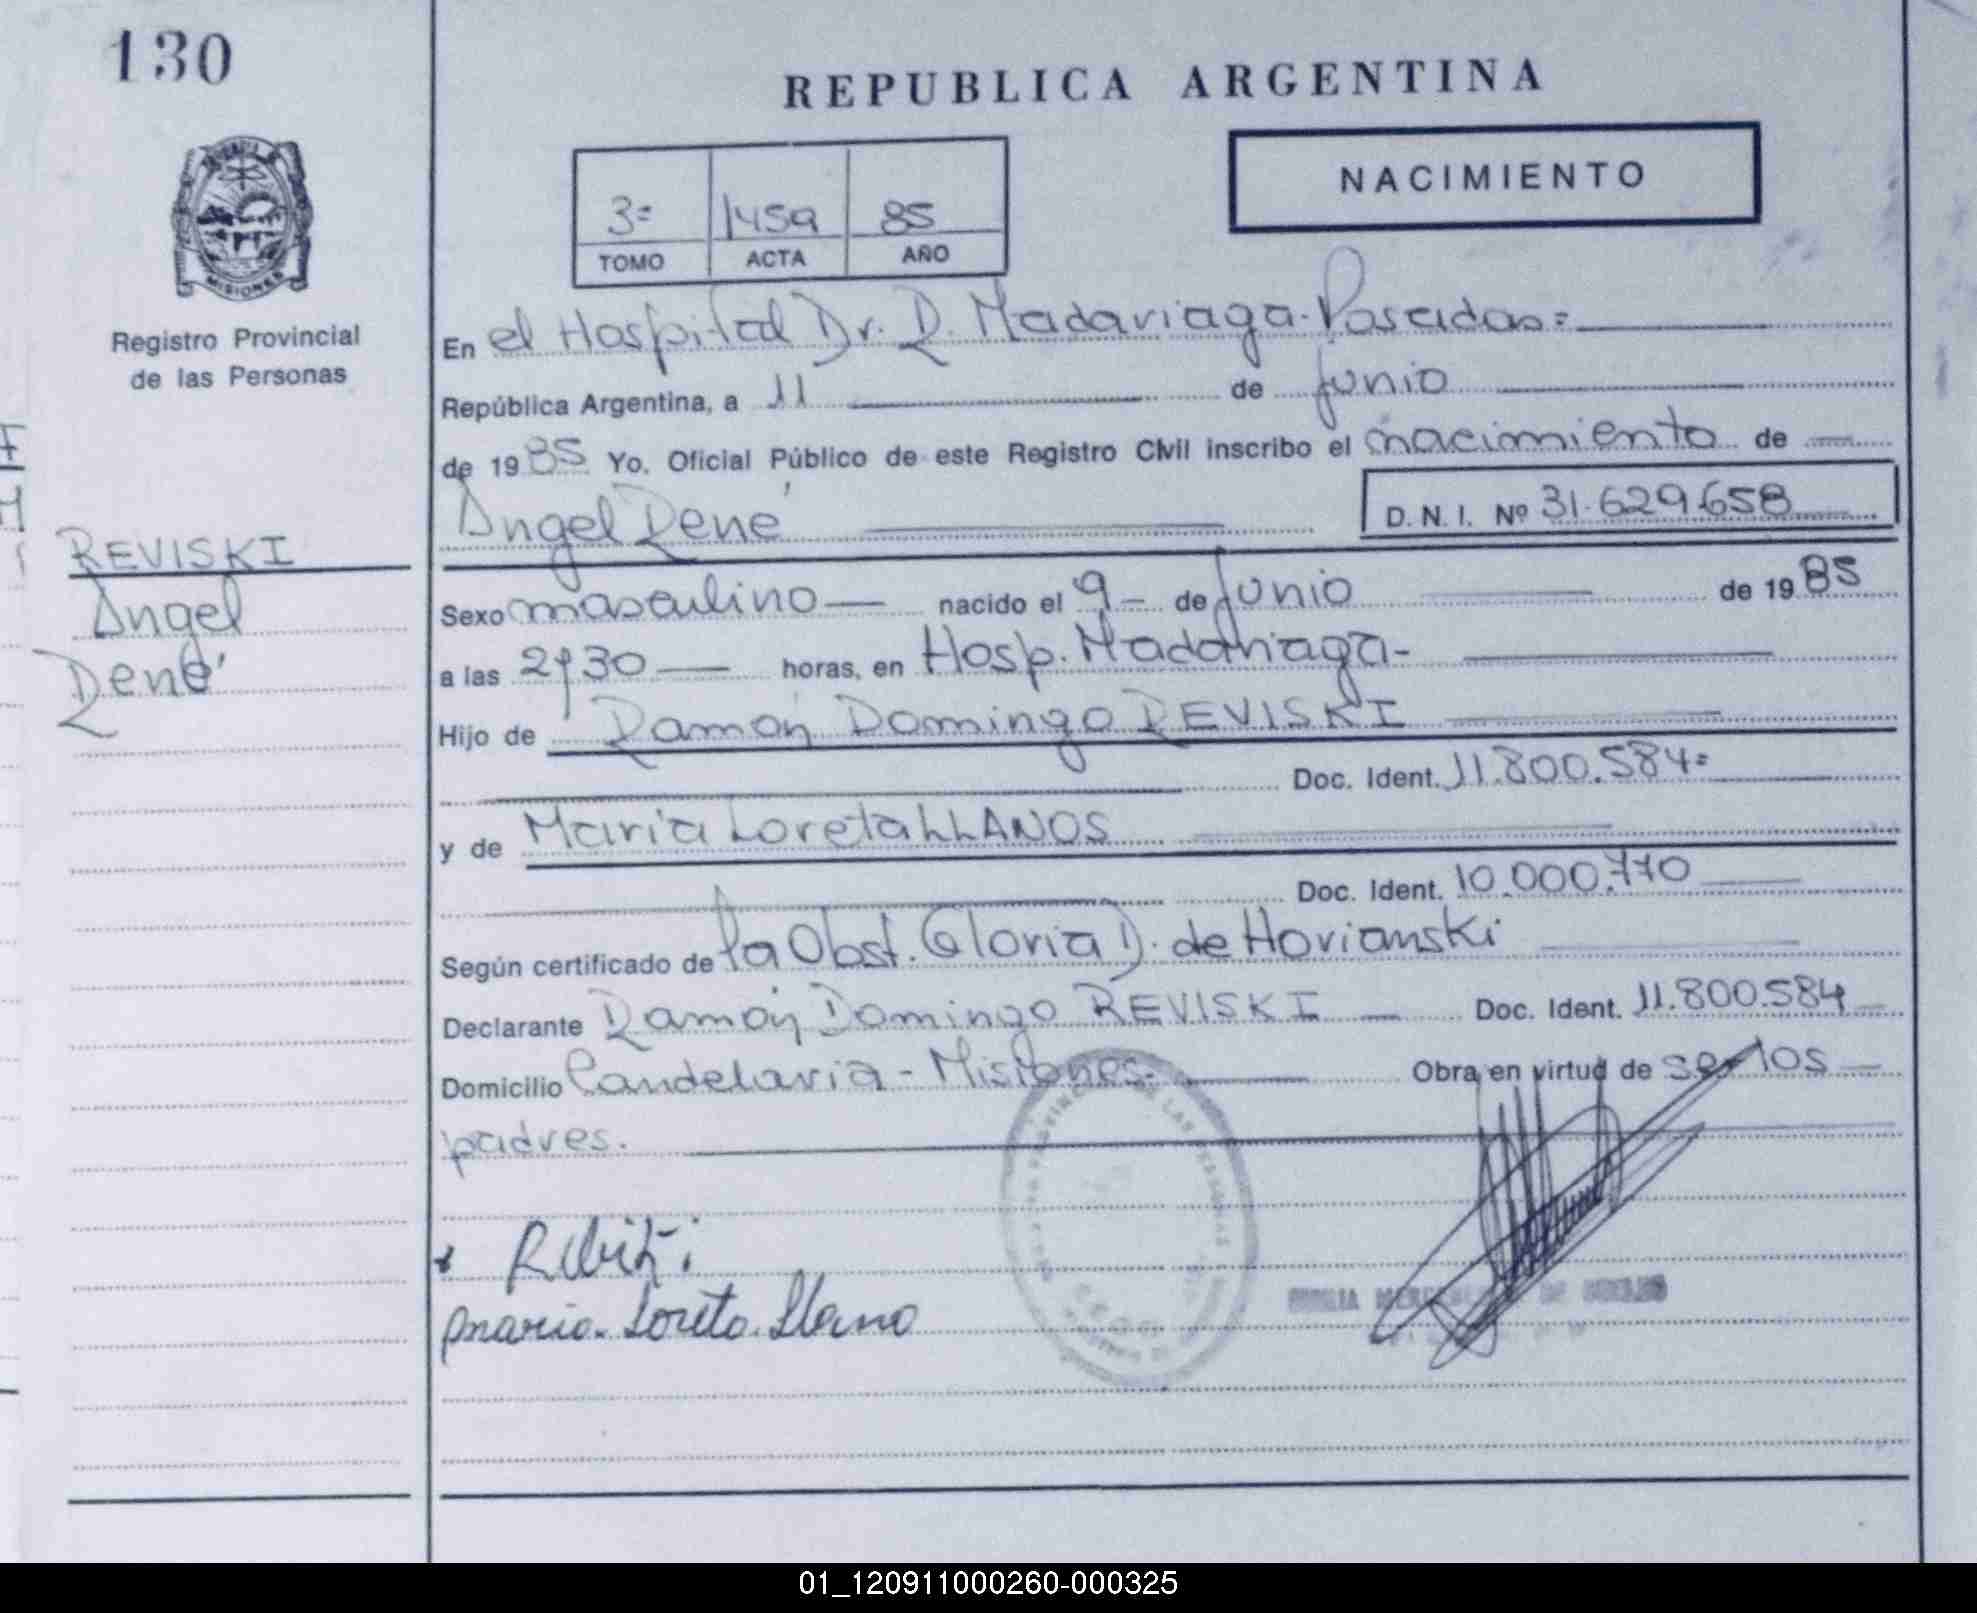 130
REPUBLICA ARGENTINA
NACIMIENTO
3= 1459 85
TOMO ACTA AÑO
MISIONES
Registro Provincial
de las Personas
En el Hospital Dr. R. Madariaga. Posadas=
República Argentina, a 11 de junio
de 1985 Yo. Oficial Público de este Registro Civil inscribo el nacimiento de
Angel René D. N. I. Nº 31.629.658
REVISKI
Angel
René
Sexo masculino nacido el 9 - de junio de 1985
a las 21,30 horas, en Hosp. Madariaga-
Hijo de Ramón Domingo REVISKI
Doc. Ident. 11.800.584=
y de Maria Loreta LLANOS
Doc. Ident. 10.000.770
Según certificado de la Obst. Gloria D. de Hovianski
Declarante Ramón Domingo REVISKI Doc. Ident. 11.800.584
Domicilio Candelaria - Misiones. Obra en virtud de ser los
padres.
Maria Loreto Llano
01_120911000260-000325